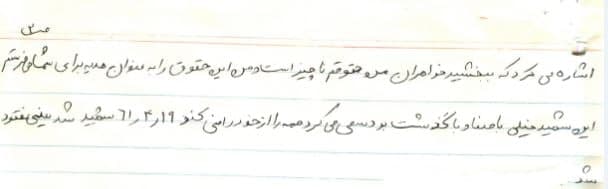 ص ۳
اشاره می کرد که ببخشید خواهران من حقوقم ناچیز است و من این حقوق را به عنوان هدیه برای شما می فرستم
این شهید خیلی با صفا و با گذشت بود سعی می کرد همه را از خود راضی کند ۱۹ر۴ر۶۱ شهید شد یعنی مفقود
شد